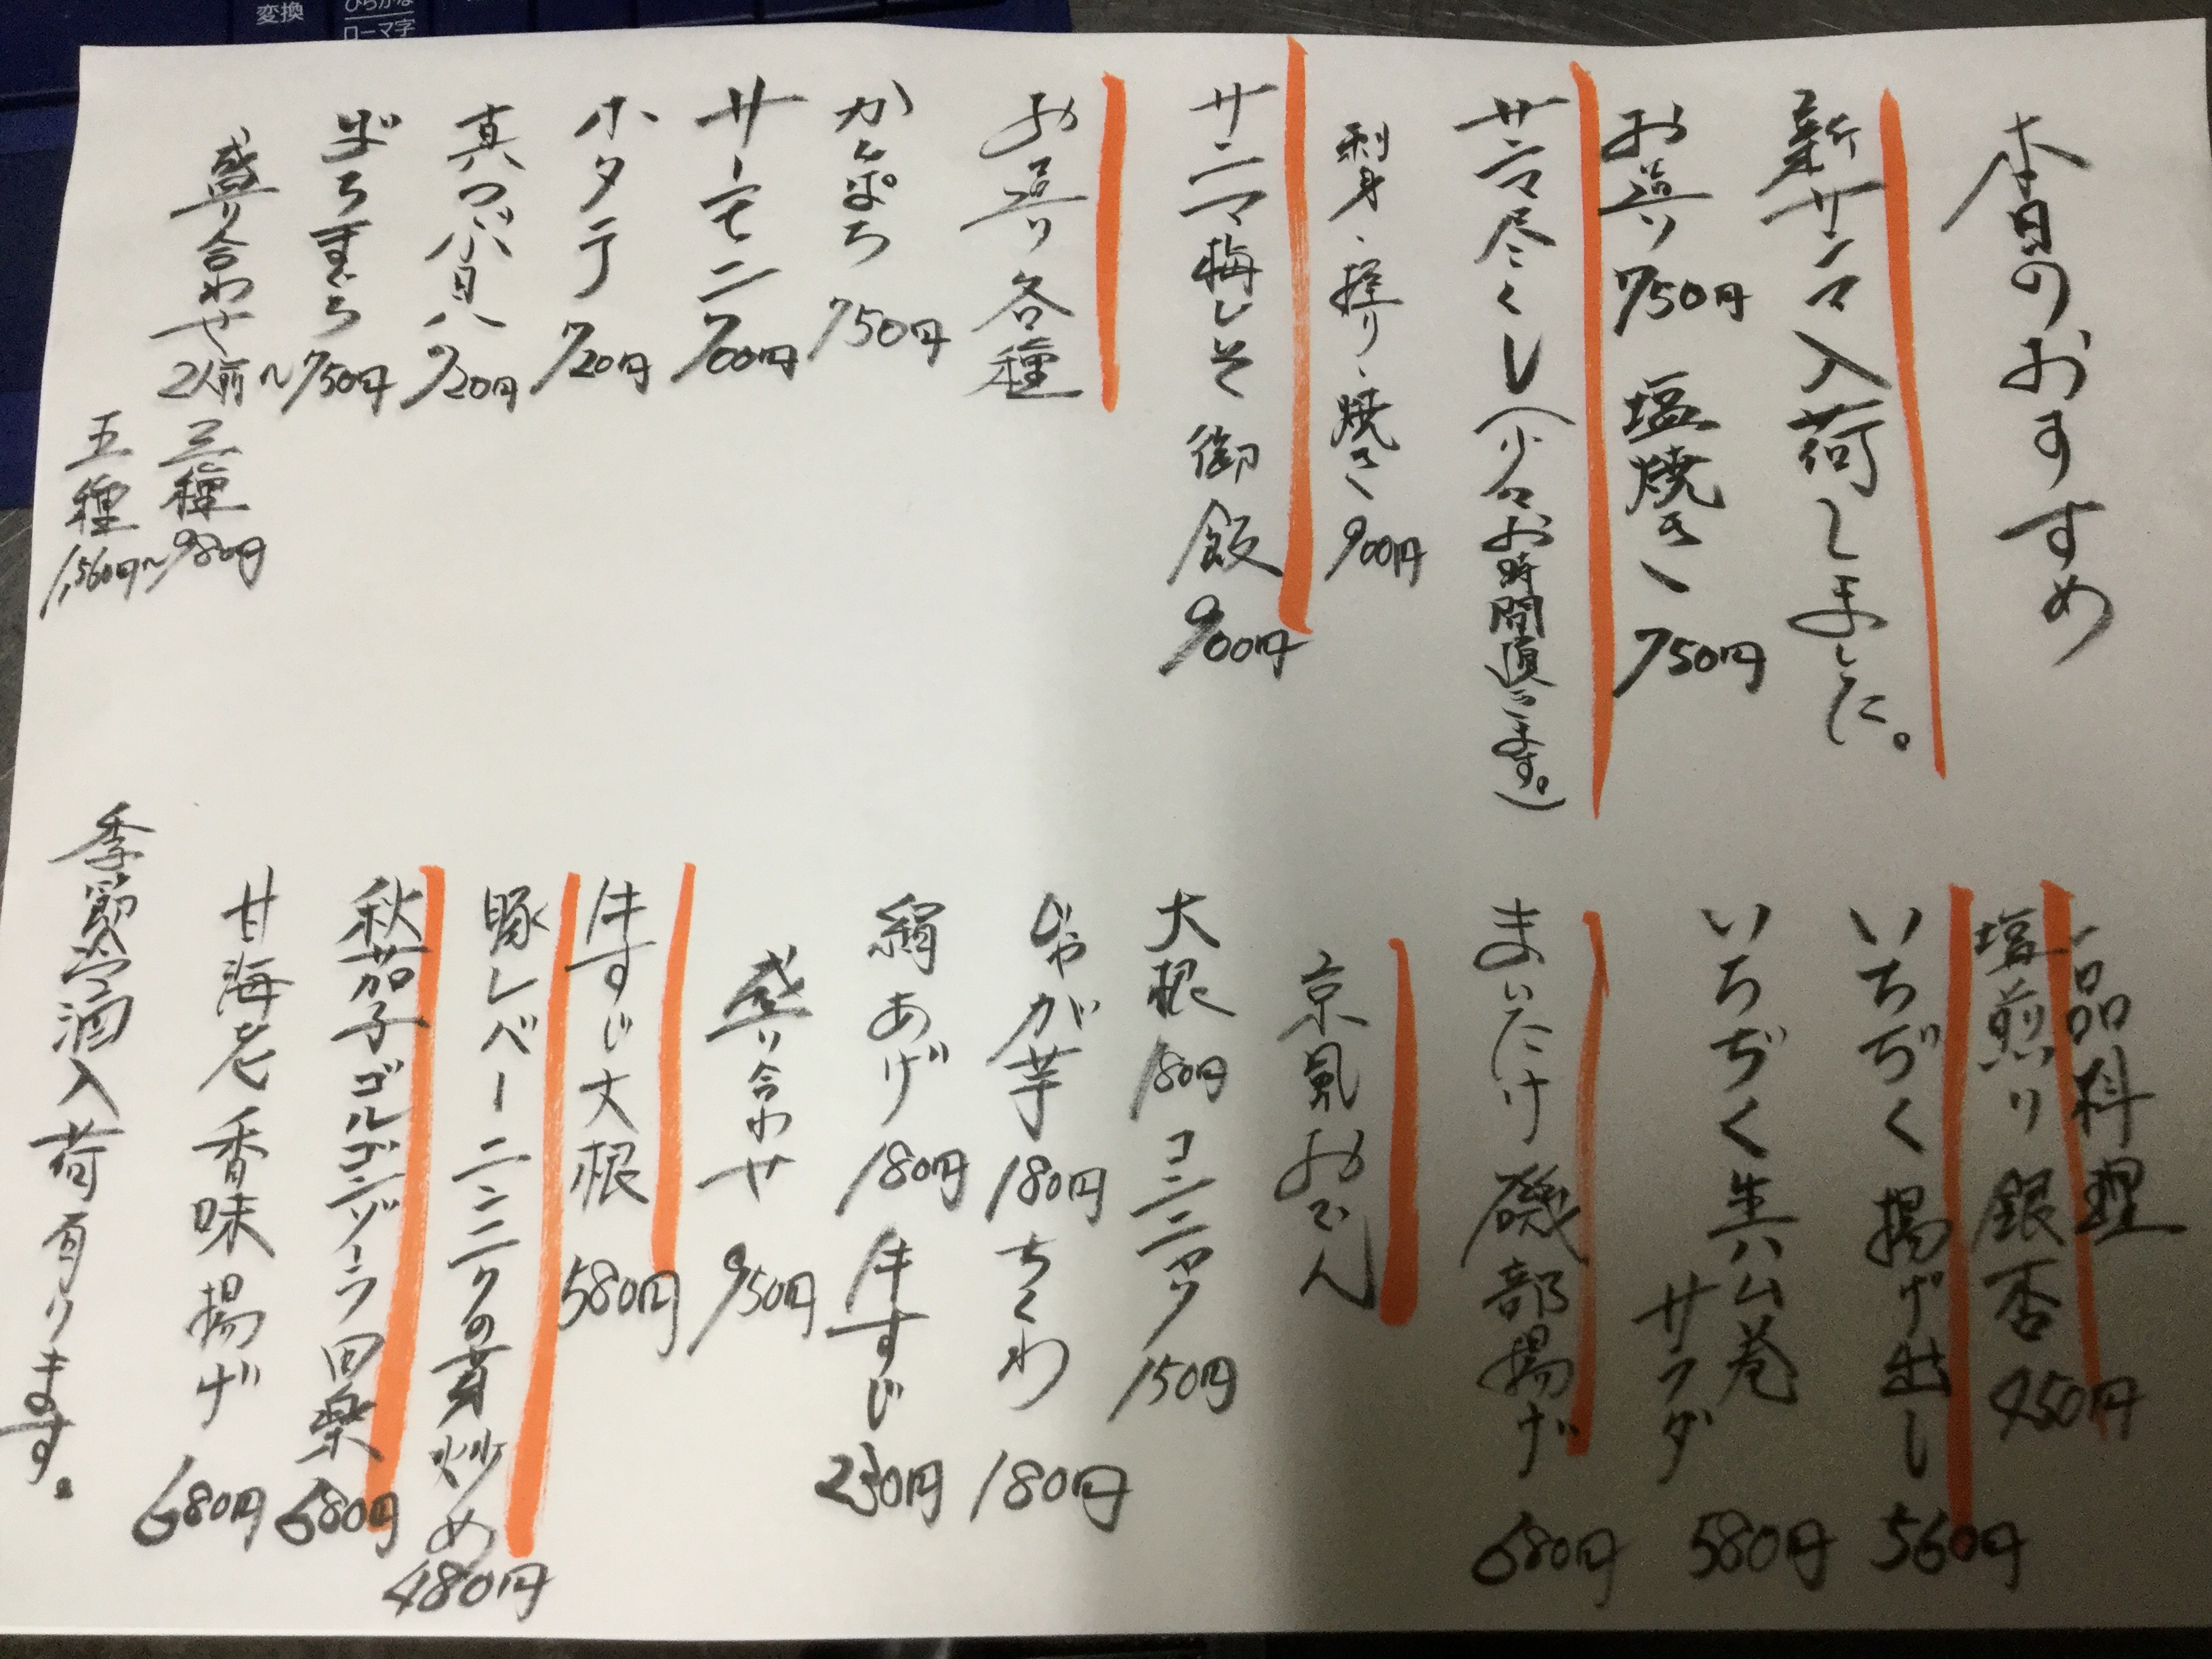 変換
ひらがな
ローマ字
本日のおすすめ
新サンマ入荷しました。
お造り 750円 塩焼き 750円
サンマ尽くし(少々お時間頂きます。)
刺身、握り、焼き 900円
サンマ梅しそ御飯 900円
お造り各種
かんぱち 750円
サーモン 700円
ホタテ 720円
真つぶ貝 720円
まぐろ 750円
盛り合わせ 2人前〜 三種 980円
五種 1,560円〜
一品料理
塩煎り銀杏 450円
いちぢく揚げ出し 560円
いちぢく生ハム巻
サラダ 580円
まいたけ磯部揚げ 680円
京風おでん
大根 180円 コンニャク 150円
じゃが芋 180円 ちくわ 180円
絹あげ 180円 牛すじ 230円
盛り合わせ 950円
牛すじ大根 580円
豚レバーニンニクの芽炒め 480円
秋茄子ゴルゴンゾーラ田楽 680円
甘海老香味揚げ 680円
季節労酒入荷有ります。